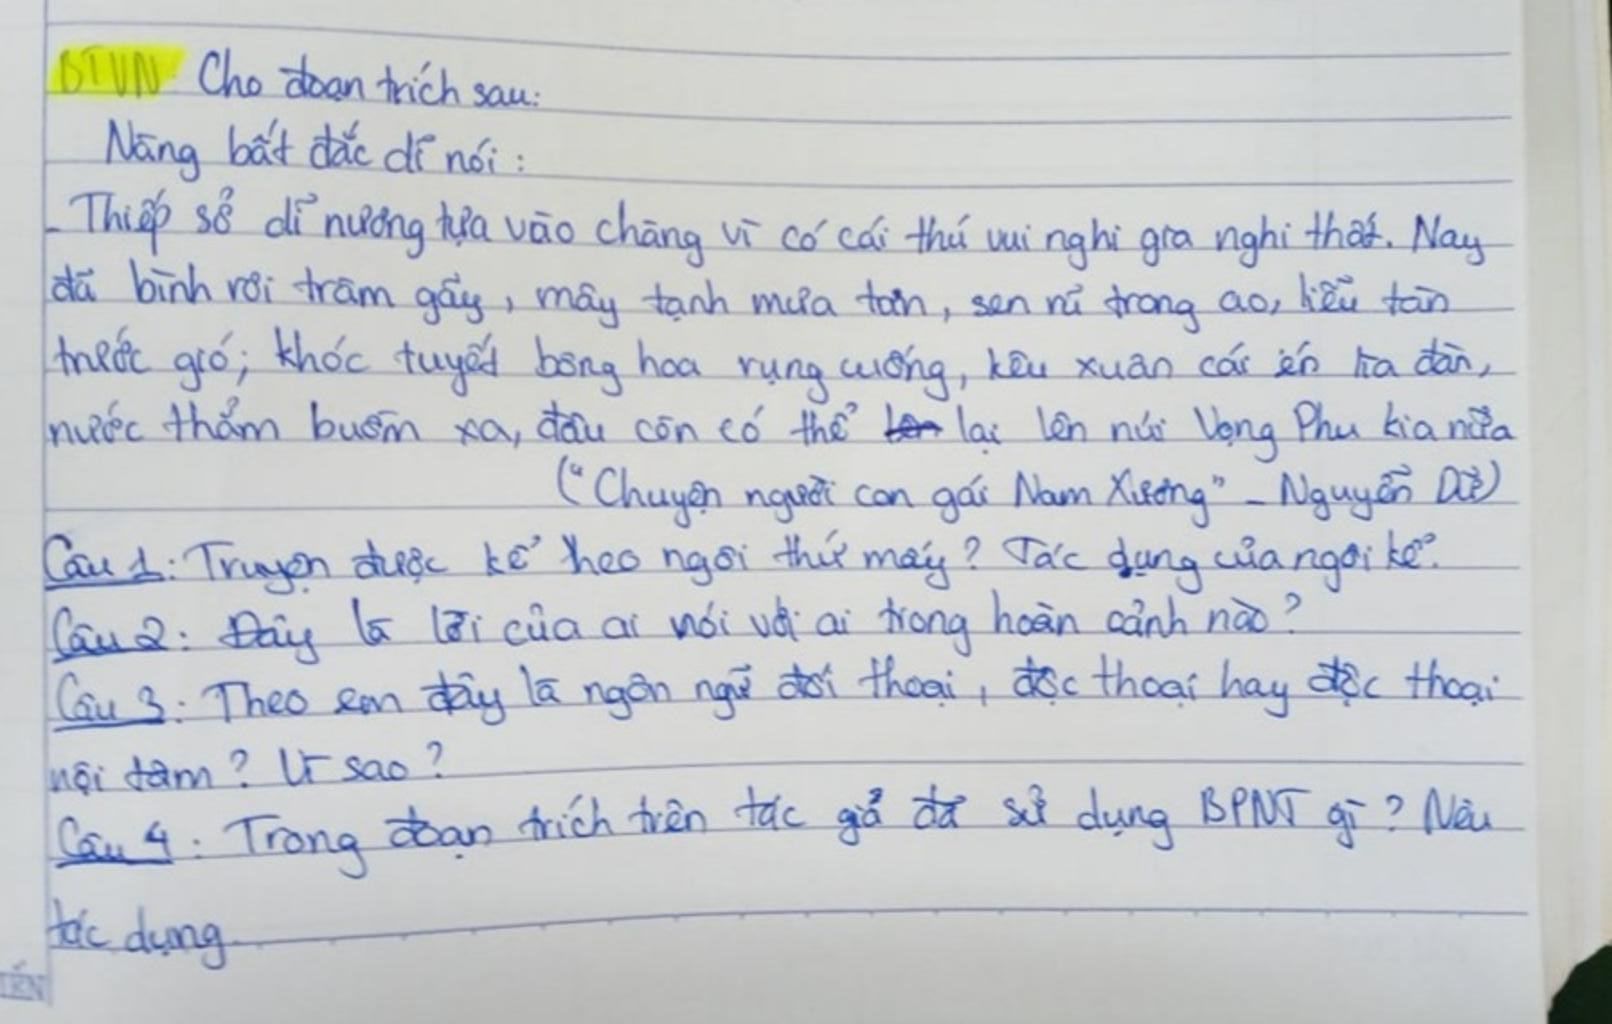 BTVN: Cho đoạn trích sau:
Nàng bất đắc dĩ nói:
- Thiếp sở dĩ nương tựa vào chàng vì có cái thú vui nghi gia nghi thất. Nay
đã bình rơi trâm gãy, mây tạnh mưa tan, sen rũ trong ao, liễu tàn
trước gió; khóc tuyết bông hoa rụng cuống, kêu xuân cái én lìa đàn,
nước thẳm buồm xa, đâu còn có thể lại lên núi Vọng Phu kia nữa
("Chuyện người con gái Nam Xương" - Nguyễn Dữ)
Câu 1: Truyện được kể theo ngôi thứ mấy? Tác dụng của ngôi kể?
Câu 2: Đây là lời của ai nói với ai trong hoàn cảnh nào?
Câu 3: Theo em đây là ngôn ngữ đối thoại, độc thoại hay độc thoại
nội tâm? Vì sao?
Câu 4: Trong đoạn trích trên tác giả đã sử dụng BPNT gì? Nêu
tác dụng